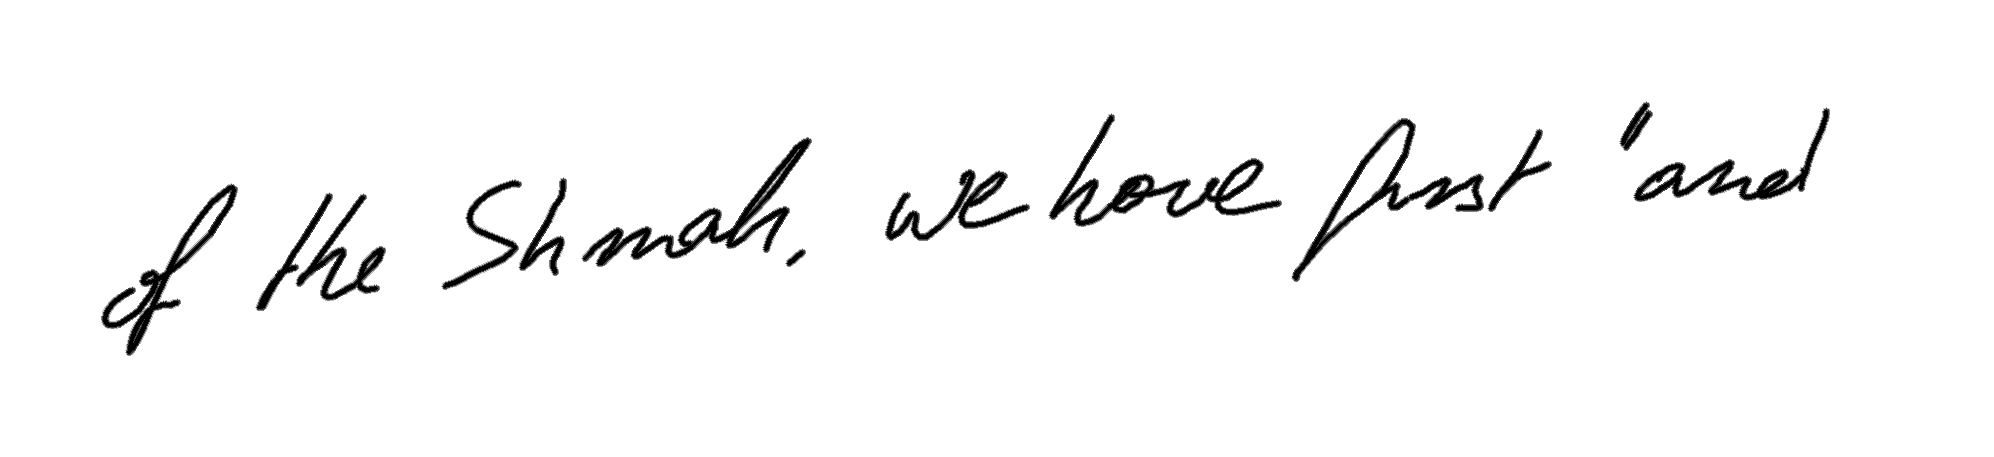 of the Shmah, we have first "and